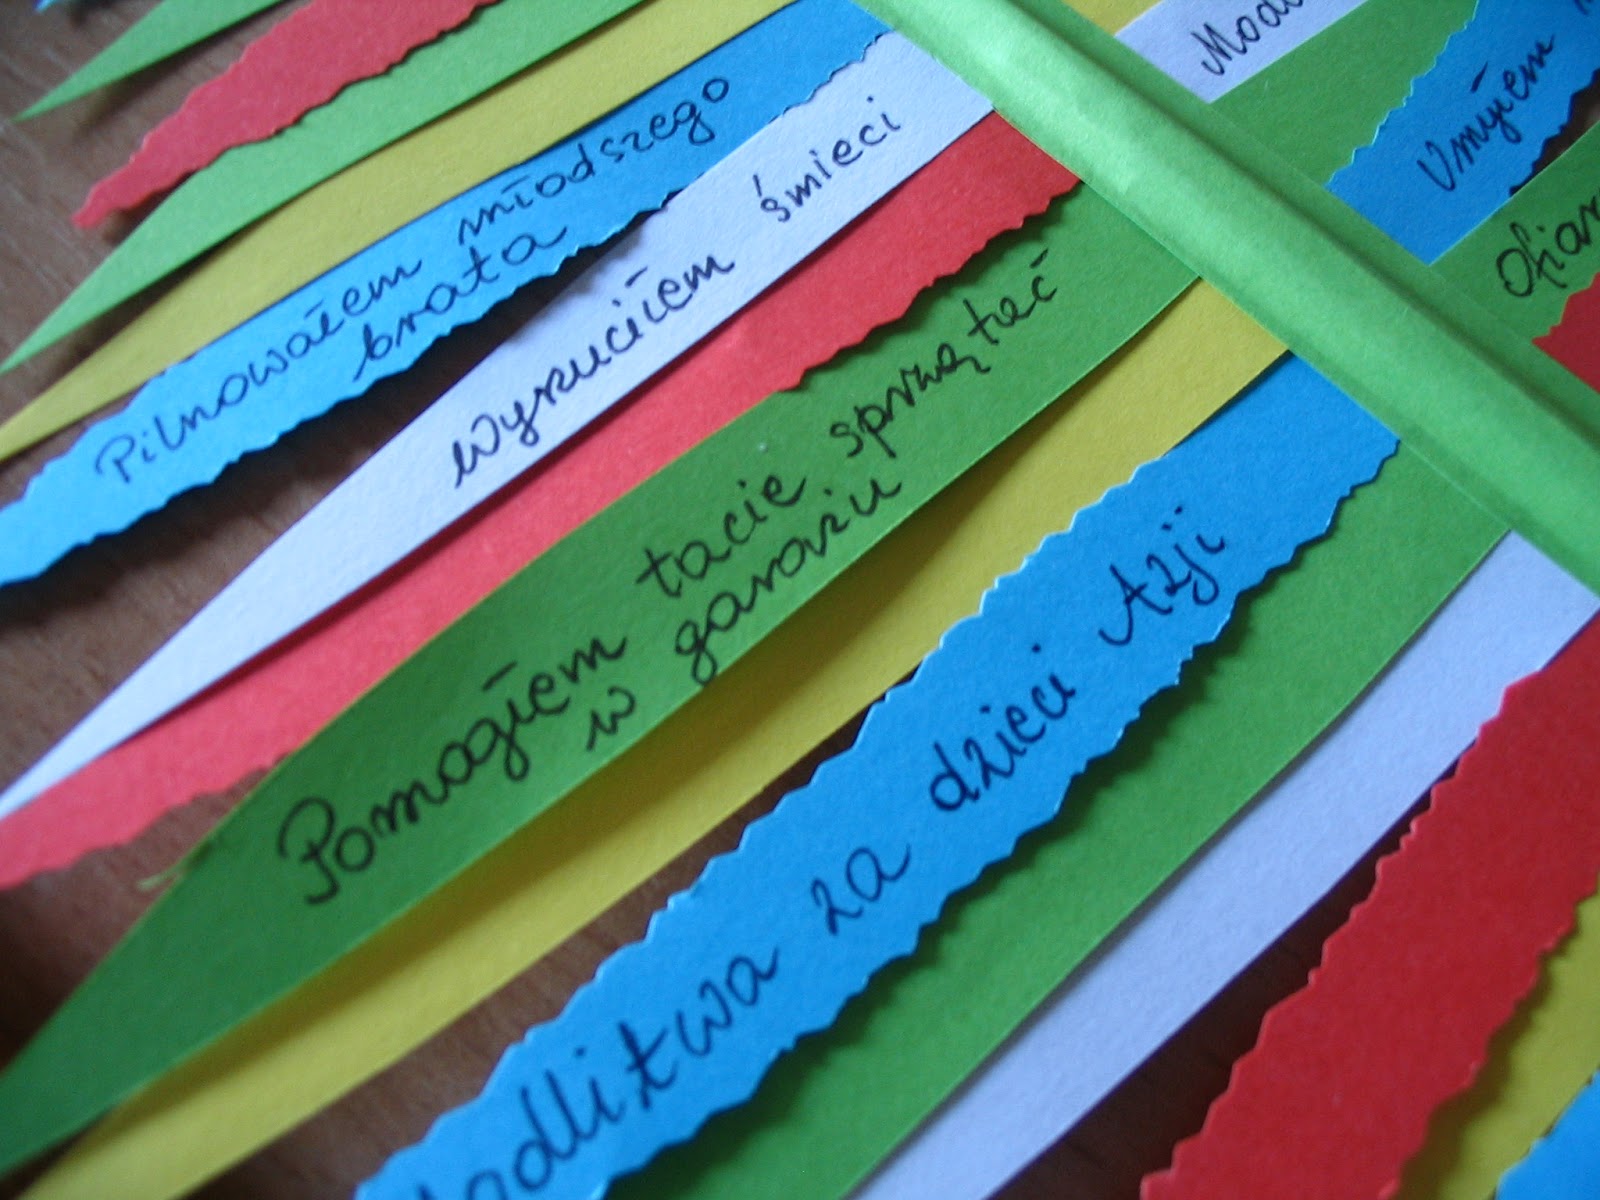 Pilnowałem młodszego
brata
Wyrzuciłem śmieci
Pomagłem tacie sprzątać
w garażu
Modlitwa za dzieci Azji
Umyłem